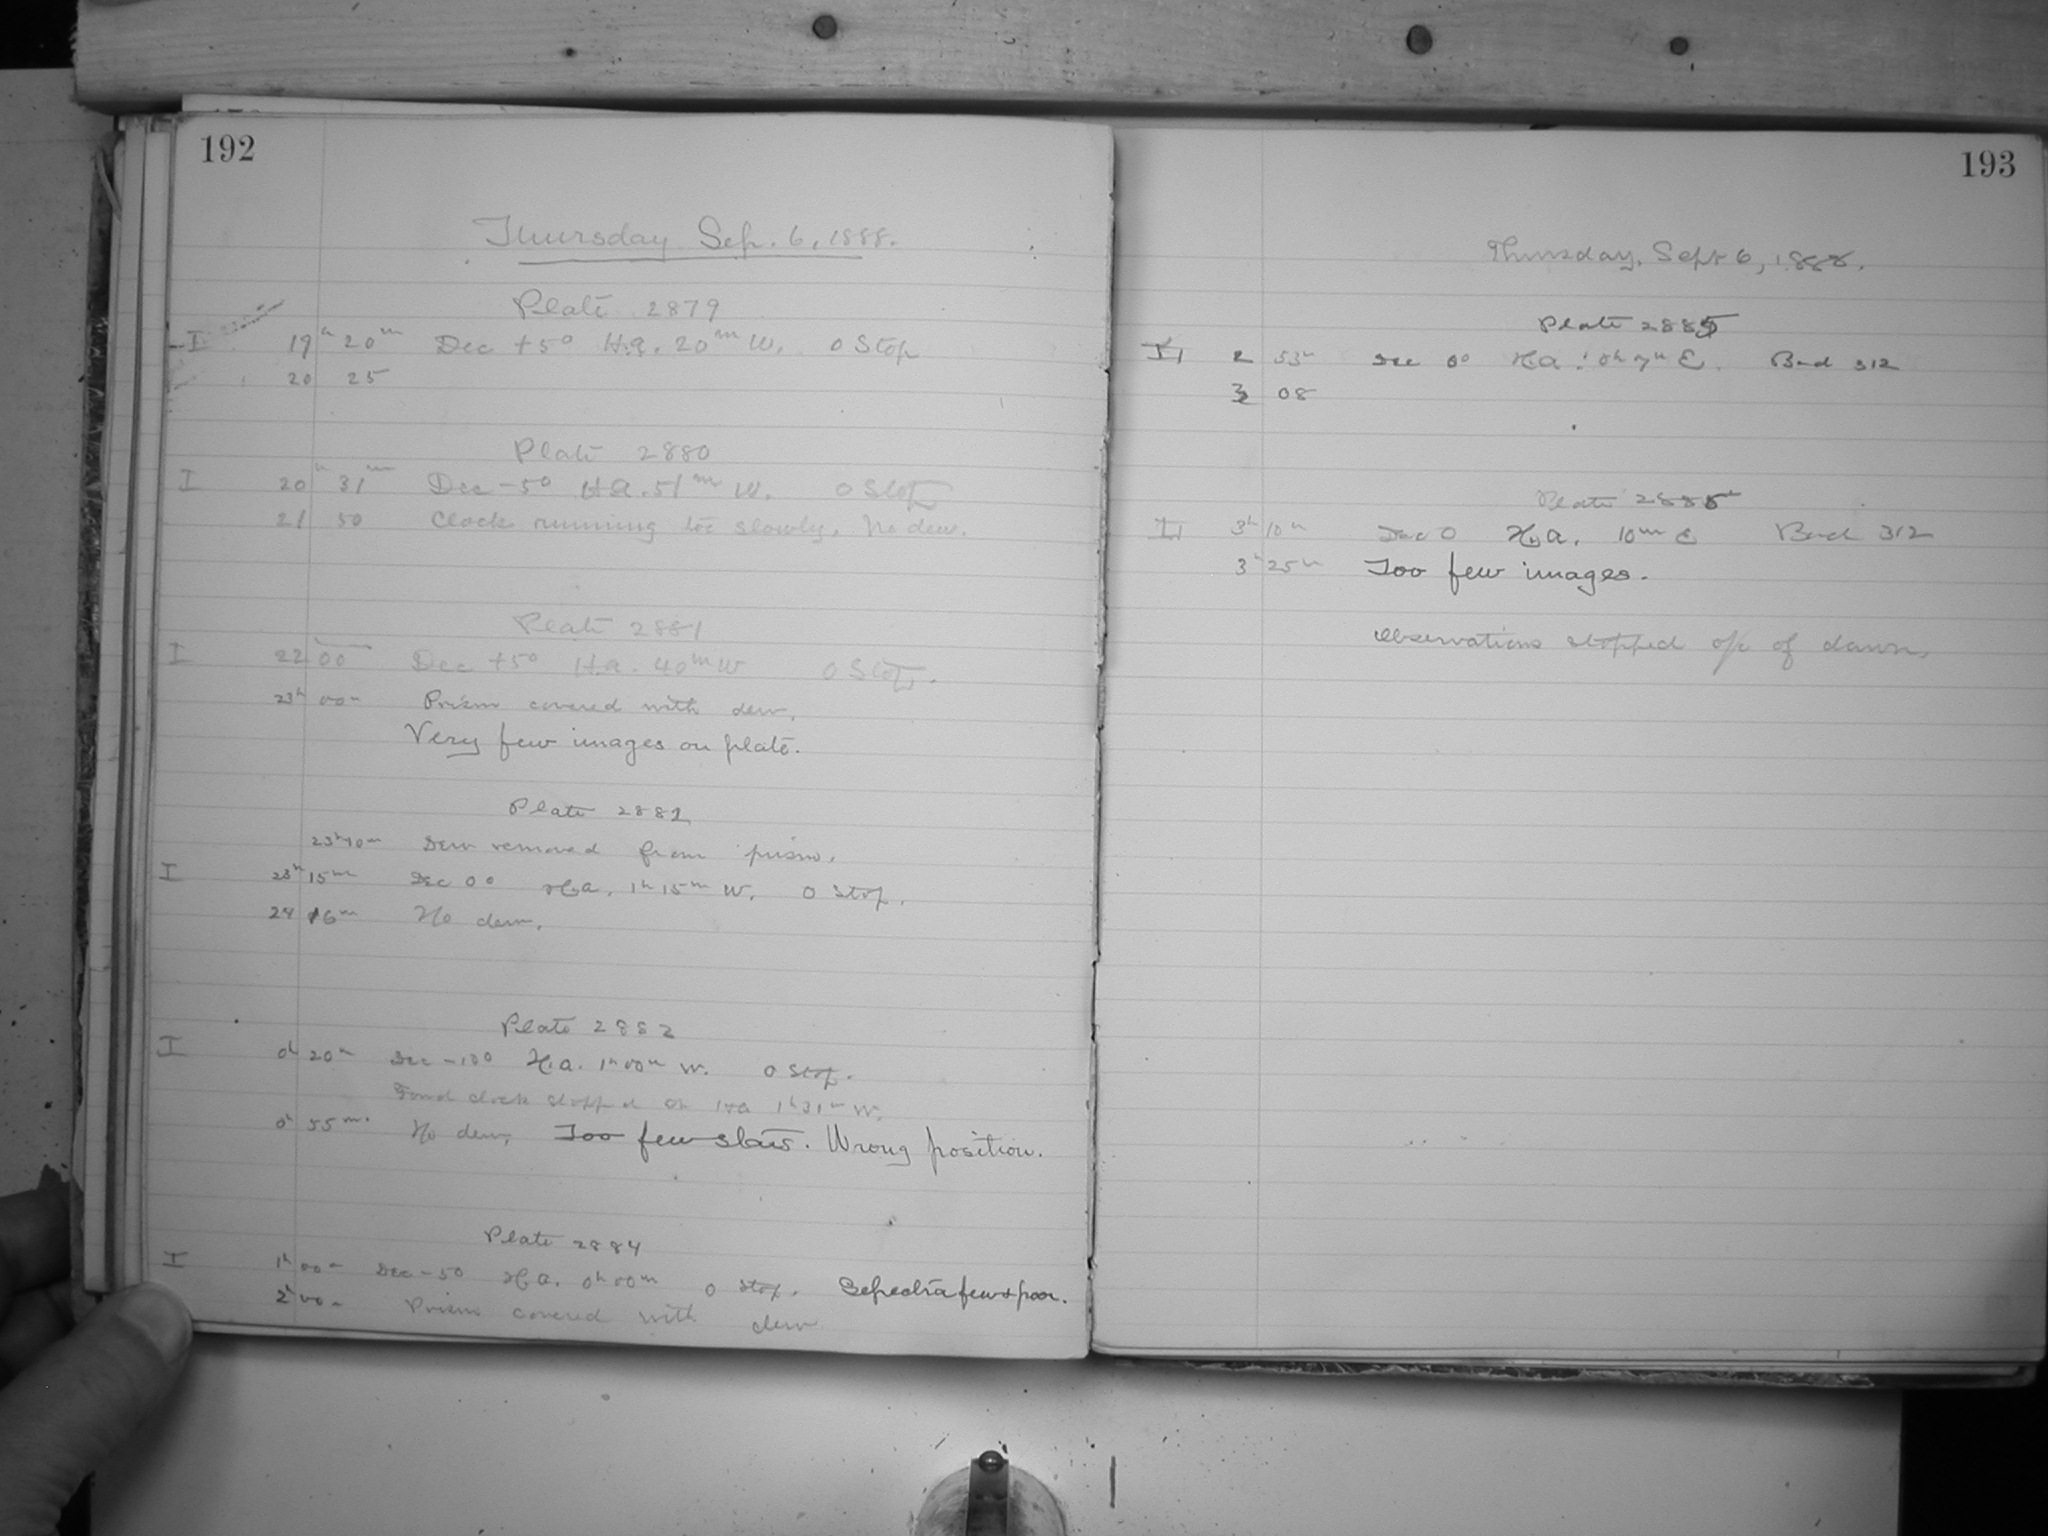 192
Thursday Sep. 6, 1888.
Plate 2879
I 19h 20m Dec +5° H.a. 20m W. 0 Stop
20 25
Plate 2880
I 20h 31m Dec -5° H.a. 51m W. 0 Stop
21 50 Clock running too slowly. No dew.
Plate 2881
I 22 00 Dec +5° H.a. 40m W 0 Stop.
23h 00m Prism covered with dew.
Very few images on plate.
Plate 2882
23h 10m Dew removed from prism.
I 23h 15m Dec 0° H.a. 1h 15m W. 0 Stop.
24 16m No dew.
Plate 2882
I 0h 20m Dec -10° H.a. 1h 00m W. 0 Stop.
Found clock stopped on Ha 1h 31m W.
0h 55m. No dew, Too few stars. Wrong position.
Plate 2884
I 1h 00m Dec -50 H.a. 0h 00m 0 Stop. few & poor.
2h 00m Prism covered with dew
193
Thursday, Sept 6, 1888.
Plate 2885
II 2 53m Dec 0° Ha. 0h 7m E. Bnd 312
3 08
Plate 2885
II 3h 10m Dec 0 H.a. 10m E Bnd 312
3h 25m Too few images.
Observations stopped o/c of dawn.